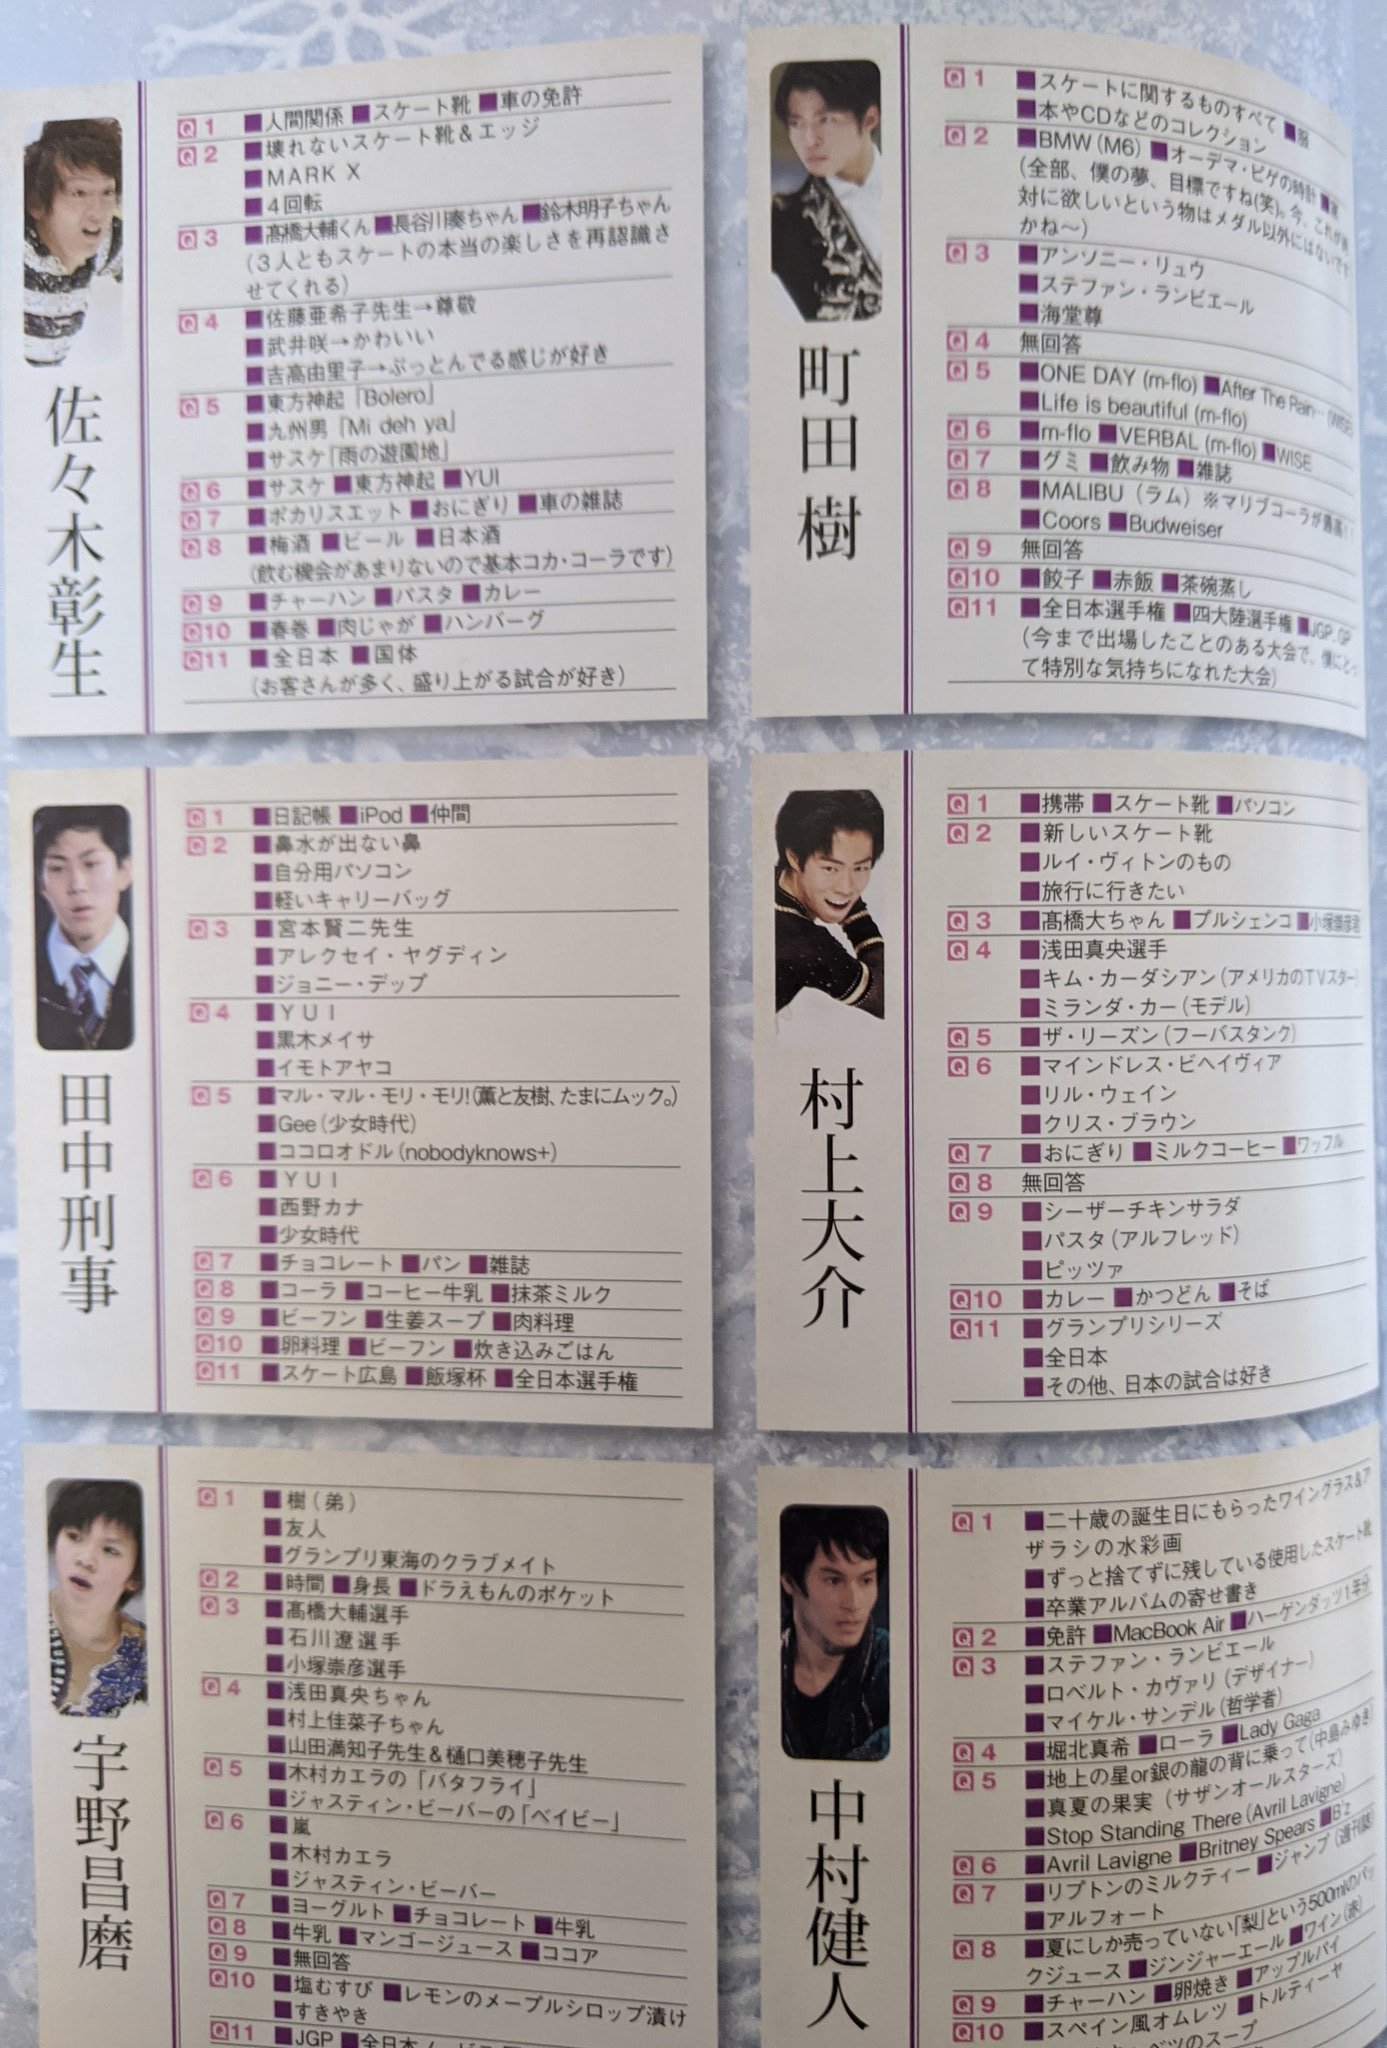 佐々木彰生
Q1 ■人間関係 ■スケート靴 ■車の免許
Q2 ■壊れないスケート靴＆エッジ
■MARK X
■4回転
Q3 ■髙橋大輔くん ■長谷川奏ちゃん ■鈴木明子ちゃん
(3人ともスケートの本当の楽しさを再認識さ
せてくれる)
Q4 ■佐藤亜希子先生→尊敬
■武井咲→かわいい
■吉高由里子→ぶっとんでる感じが好き
Q5 ■東方神起「Bolero」
■九州男「Mi deh ya」
■サスケ「雨の遊園地」
Q6 ■サスケ ■東方神起 ■YUI
Q7 ■ポカリスエット ■おにぎり ■車の雑誌
Q8 ■梅酒 ■ビール ■日本酒
(飲む機会があまりないので基本コカ・コーラです)
Q9 ■チャーハン ■パスタ ■カレー
Q10 ■春巻 ■肉じゃが ■ハンバーグ
Q11 ■全日本 ■国体
(お客さんが多く、盛り上がる試合が好き)
町田 樹
Q1 ■スケートに関するものすべて ■服
■本やCDなどのコレクション
Q2 ■BMW(M6) ■オーデマ・ピゲの時計 ■
(全部、僕の夢、目標ですね(笑)。今、これが絶
対に欲しいという物はメダル以外にはないです
かね〜)
Q3 ■アンソニー・リュウ
■ステファン・ランビエール
■海堂尊
Q4 無回答
Q5 ■ONE DAY (m-flo) ■After The Rain… (WISE)
■Life is beautiful (m-flo)
Q6 ■m-flo ■VERBAL (m-flo) ■WISE
Q7 ■グミ ■飲み物 ■雑誌
Q8 ■MALIBU（ラム）※マリブコーラが最高！！
■Coors ■Budweiser
Q9 無回答
Q10 ■餃子 ■赤飯 ■茶碗蒸し
Q11 ■全日本選手権 ■四大陸選手権 ■JGP, GP
(今まで出場したことのある大会で、僕にとっ
て特別な気持ちになれた大会)
田中刑事
Q1 ■日記帳 ■iPod ■仲間
Q2 ■鼻水が出ない鼻
■自分用パソコン
■軽いキャリーバッグ
Q3 ■宮本賢二先生
■アレクセイ・ヤグディン
■ジョニー・デップ
Q4 ■YUI
■黒木メイサ
■イモトアヤコ
Q5 ■マル・マル・モリ・モリ!(薫と友樹、たまにムック。)
■Gee(少女時代)
■ココロオドル(nobodyknows+)
Q6 ■YUI
■西野カナ
■少女時代
Q7 ■チョコレート ■パン ■雑誌
Q8 ■コーラ ■コーヒー牛乳 ■抹茶ミルク
Q9 ■ビーフン ■生姜スープ ■肉料理
Q10 ■卵料理 ■ビーフン ■炊き込みごはん
Q11 ■スケート広島 ■飯塚杯 ■全日本選手権
村上大介
Q1 ■携帯 ■スケート靴 ■パソコン
Q2 ■新しいスケート靴
■ルイ・ヴィトンのもの
■旅行に行きたい
Q3 ■髙橋大ちゃん ■プルシェンコ ■小塚崇彦君
Q4 ■浅田真央選手
■キム・カーダシアン(アメリカのTVスター)
■ミランダ・カー(モデル)
Q5 ■ザ・リーズン(フーバスタンク)
Q6 ■マインドレス・ビヘイヴィア
■リル・ウェイン
■クリス・ブラウン
Q7 ■おにぎり ■ミルクコーヒー ■ワッフル
Q8 無回答
Q9 ■シーザーチキンサラダ
■パスタ(アルフレッド)
■ピッツァ
Q10 ■カレー ■かつどん ■そば
Q11 ■グランプリシリーズ
■全日本
■その他、日本の試合は好き
宇野昌磨
Q1 ■樹(弟)
■友人
■グランプリ東海のクラブメイト
Q2 ■時間 ■身長 ■ドラえもんのポケット
Q3 ■髙橋大輔選手
■石川遼選手
■小塚崇彦選手
Q4 ■浅田真央ちゃん
■村上佳菜子ちゃん
■山田満知子先生＆樋口美穂子先生
Q5 ■木村カエラの「バタフライ」
■ジャスティン・ビーバーの「ベイビー」
Q6 ■嵐
■木村カエラ
■ジャスティン・ビーバー
Q7 ■ヨーグルト ■チョコレート ■牛乳
Q8 ■牛乳 ■マンゴージュース ■ココア
Q9 ■無回答
Q10 ■塩むすび ■レモンのメープルシロップ漬け
■すきやき
Q11 ■JGP ■全日本ノービス
中村健人
Q1 ■二十歳の誕生日にもらったワイングラス＆ア
ザラシの水彩画
■ずっと捨てずに残している使用したスケート靴
■卒業アルバムの寄せ書き
Q2 ■免許 ■MacBook Air ■ハーゲンダッツ1年分
Q3 ■ステファン・ランビエール
■ロベルト・カヴァリ(デザイナー)
■マイケル・サンデル(哲学者)
Q4 ■堀北真希 ■ローラ ■Lady Gaga
Q5 ■地上の星or銀の龍の背に乗って(中島みゆき)
■真夏の果実（サザンオールスターズ）
■Stop Standing There (Avril Lavigne)
Q6 ■Avril Lavigne ■Britney Spears ■B'z
Q7 ■リプトンのミルクティー ■ジャンプ（週刊誌）
■アルフォート
Q8 ■夏にしか売っていない「梨」という500mlのパッ
クジュース ■ジンジャーエール ■ワイン(赤)
Q9 ■チャーハン ■卵焼き ■アップルパイ
Q10 ■スペイン風オムレツ ■トルティーヤ
のスープ